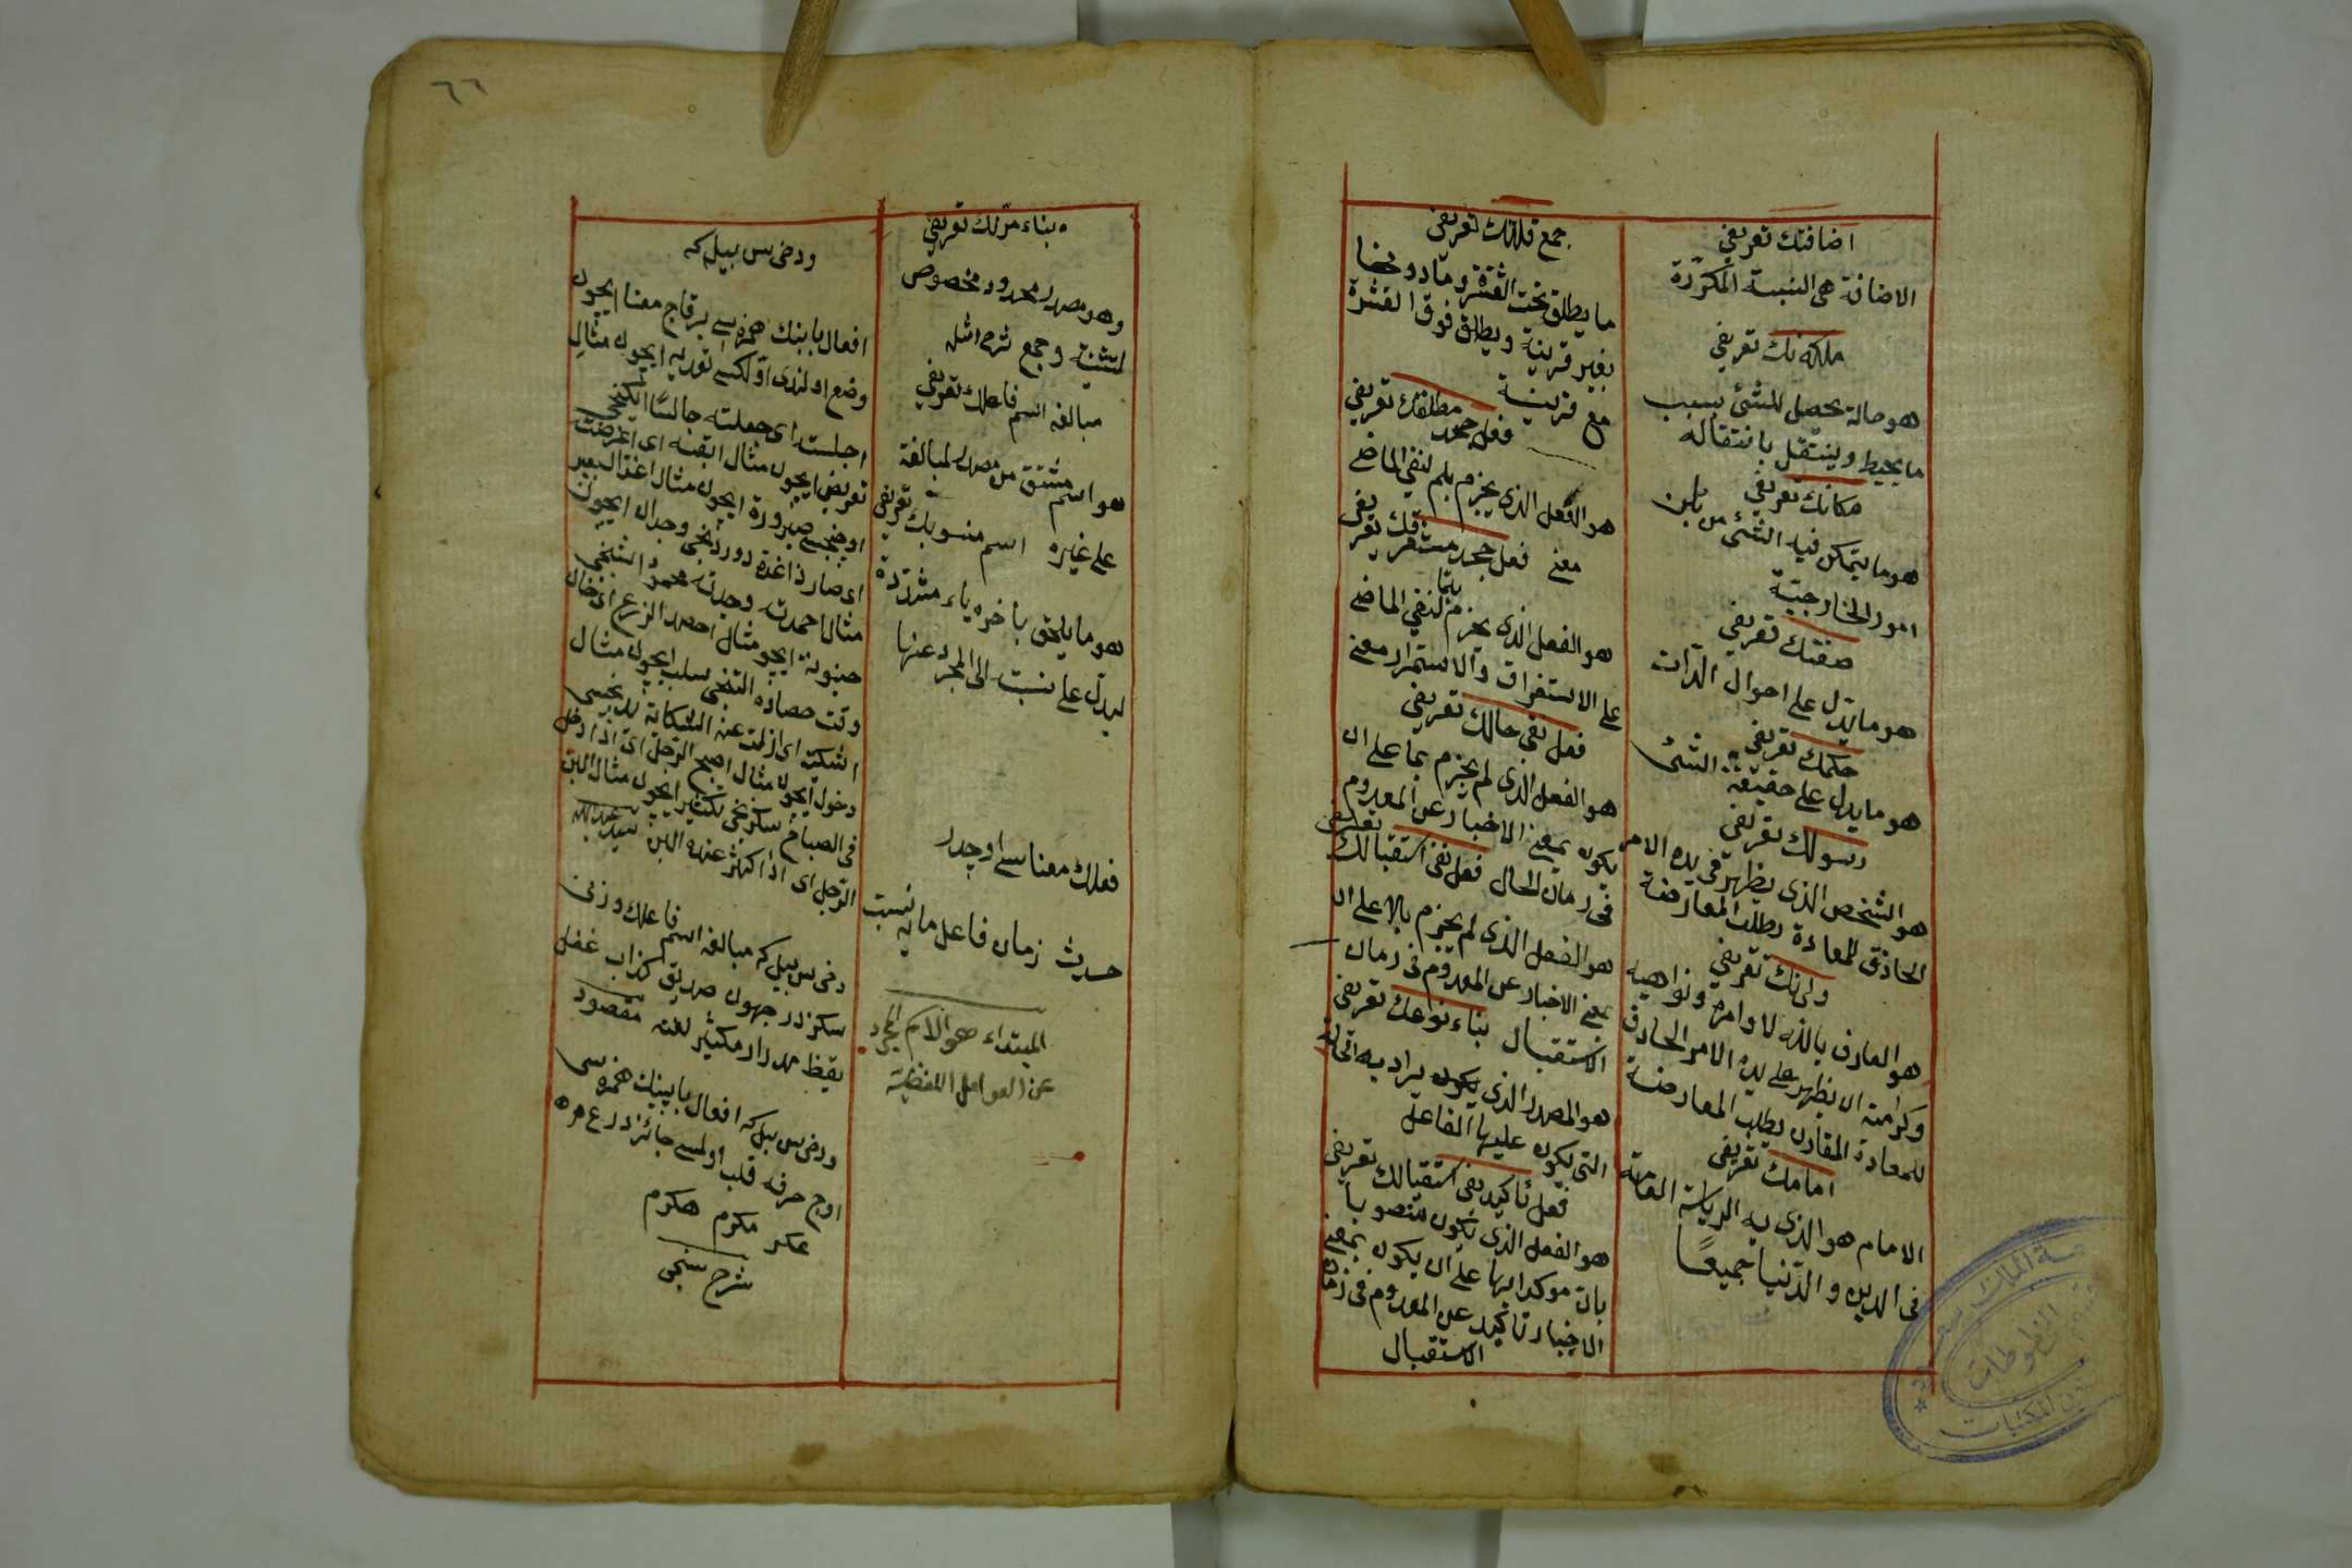 اضافتك تعريفي
الاضافة هي النسبة المكررة
ملكه نك تعريفي
هو حالة يحصل للشئ بسبب
ما يحيط وينتقل بانتقاله
مكانك تعريفي
هو ما يتمكن فيه الشئ من
امور الخارجية
صفتك تعريفي
هو ما يدل على احوال الذات
حكمك تعريفي
هو ما يدل على حقيقة الشئ
رسولك تعريفي
هو الشخص الذى يظهر فى يده الامر
الخاذق للعادة بطلب المعارضة
ولينك تعريفي
هو العارف بالله لاوامره ونواهيه
وكرامته ان يظهر على يده الامر الخارق
للعادة المقارن بطلب المعارضة
امامك تعريفي
الامام هو الذى به الرياسة العامة
فى الدين والدنيا جميعًا
جمع قلتك تعريفي
ما يطلق تحت العشرة وما دونها
بغير قرينة ويطلق فوق العشرة
مع قرينة
فعل جحد مطلقك تعريفي
هو الفعل الذى يجزم بلم لنفى الماضى
معنى فعل جحد مستغرقك تعريفي
هو الفعل الذى يجزم بلما لنفى الماضى
على الاستغراق والاستمرار معنى
فعل نفى حالك تعريفي
هو الفعل الذى لم يجزم بما على ان
يكون بمعنى الاخبار عن المعدوم
فى زمان الحال فعل نفى استقبالك تعريفي
هو الفعل الذى لم يجزم بلا على ان
بمعنى الاخبار عن المعدوم فى زمان
الاستقبال بناء نوعك تعريفي
هو المصدر الذى يكون يراد به الحالة
التى يكون عليها الفاعل
فعل تأكيد نفى استقبالك تعريفي
هو الفعل الذى تكون منصوبا
بان موكدا لها على ان يكون بمعنى
الاخبار تأكيد عن المعدوم فى زمان
الاستقبال
بناء مرّنك تعريفي
وهو مصدر محدود مخصوص
لتثنية وجمع شرح امثله
مبالغه اسم فاعلك تعريفي
هو اسم مشتق من مصدر لمبالغة
على غيره اسم منسوبك تعريفي
هو ما يلحق باخره ياء مشددة
ليدل على نسبت الى المجرد عنها
فعلك معناسى اوچدر
حدث زمان فاعل مايه نسبت
المبتداء هو الاسم المجرد
عن العوامل اللفظية
ودخى س بيل كه
افعال بابنك همزه سى برقاچ معنا ايچون
وضع اولندى اولكسى تعديه ايچون مثال
اجلسته اى جعلته جالسًا ايكنجى
تعريض ايچون مثال ابقته اى اعرضت
اوچنجى صيرورة ايچون مثال اغد البعير
اى صار ذا غدة دوردنجى وجدان ايچون
مثال احمدت وجدت محمودا بشنجى
حينونة ايچون مثال احصد الزرع اى حان
وقت حصاده التنجى سلب ايچون مثال
اشكيته اى ازلت عنه الشكاية يدنجى
دخول ايچون مثال اصبح الرجل اى اذا دخل
فى الصباح سكزنجى تكثير ايچون مثال البن
الرجل اى اذا كثر عنده اللبن سيد عبد الله
دخى س بيل كه مبالغه اسم فاعلك وزنى
سكزدر جهول صديق كذاب غفل
يقظ مدرار مكثير لعنه مقصود
ودخى س بيل كه افعال بابينك همزه سى
اوچ حرفه قلب اولمسى جائزدر ع م ه
عكرم مكرم هكرم
شرح سنجى
٦٦
المخطوطات
المكتبات